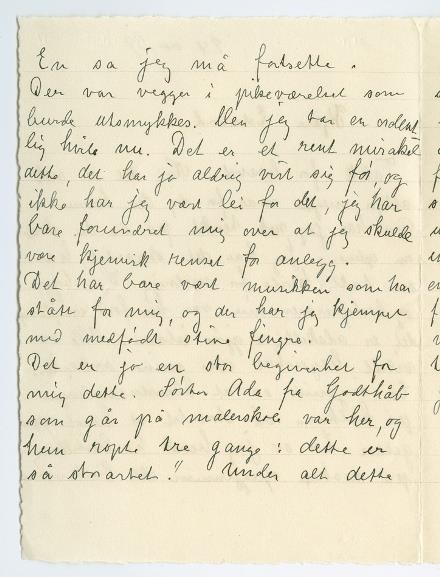 En sa jeg må fortsette.
Der var vegger i pikeværelset som
burde utsmykkes. Men jeg tar en ordent
lig hvile nu. Det er et rent mirakel
dette, det har jo aldrig vist sig før, og
ikke har jeg vært lei for det, jeg har
bare forundret mig over at jeg skulde
være kjemisk renset for anlegg.
Det har bare vært musikken som har
stått for mig, og der har jeg kjempet
med medfødt stive fingre.
Det er jo en stor begivenhet for
mig dette. Søster Ada fra Godthåb
som går på malerskole var her, og
hun ropte tre gange: dette er
så storartet." Under alt dette